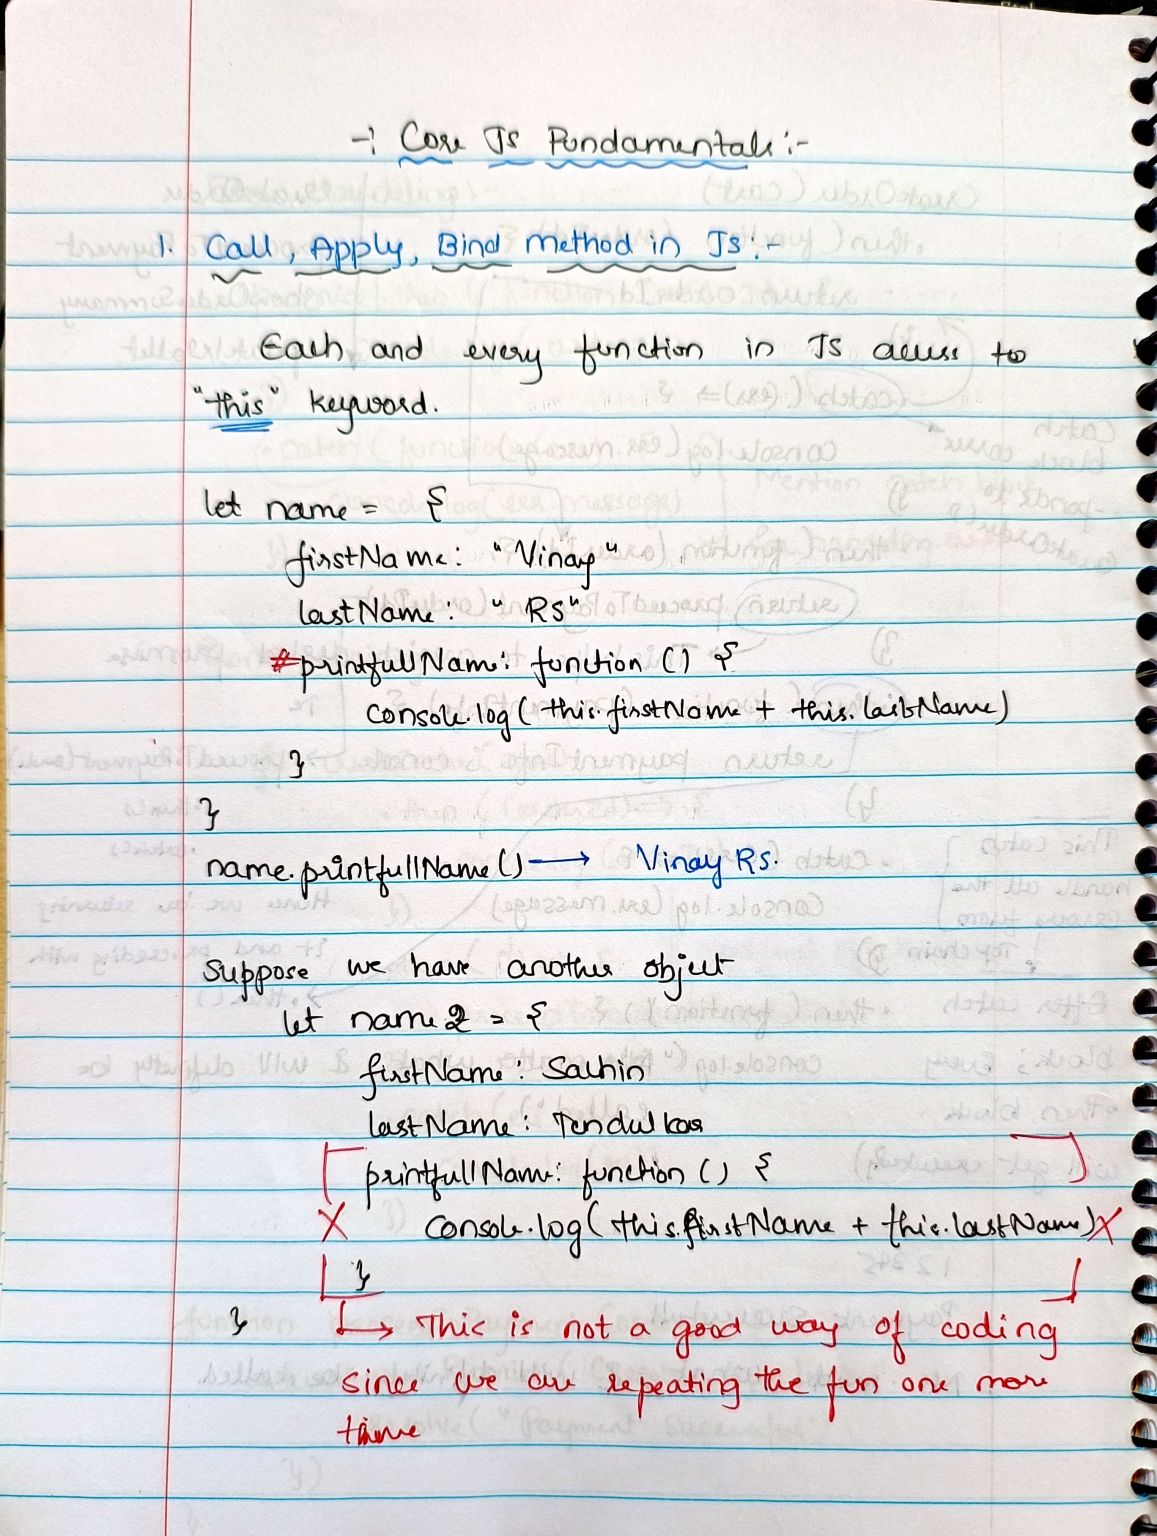 -: Core JS Fundamentals :-
1. Call, Apply, Bind method in JS :-
Each and every function in JS access to
"this" keyword.
let name = {
firstName: "Vinay"
lastName: "RS"
#printfullName: function () {
console.log( this.firstName + this.lastName)
}
}
name.printfullName() → Vinay RS.
Suppose we have another object
let name 2 = {
firstName: Sachin
lastName: Tendulkar
printfullName: function () {
X console.log( this.firstName + this.lastName) X
}
}
↳ This is not a good way of coding
since we are repeating the fun one more
time